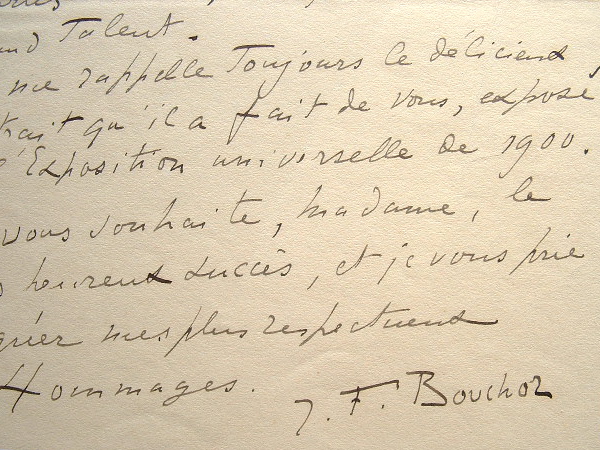 and Talent.
me rappelle Toujours le délicieux
trait qu'il a fait de vous, exposé
l'Exposition universelle de 1900.
vous souhaite, Madame, le
s heureux succès, et je vous prie
gréer mes plus respectueux
Hommages.
J. F. Bouchor